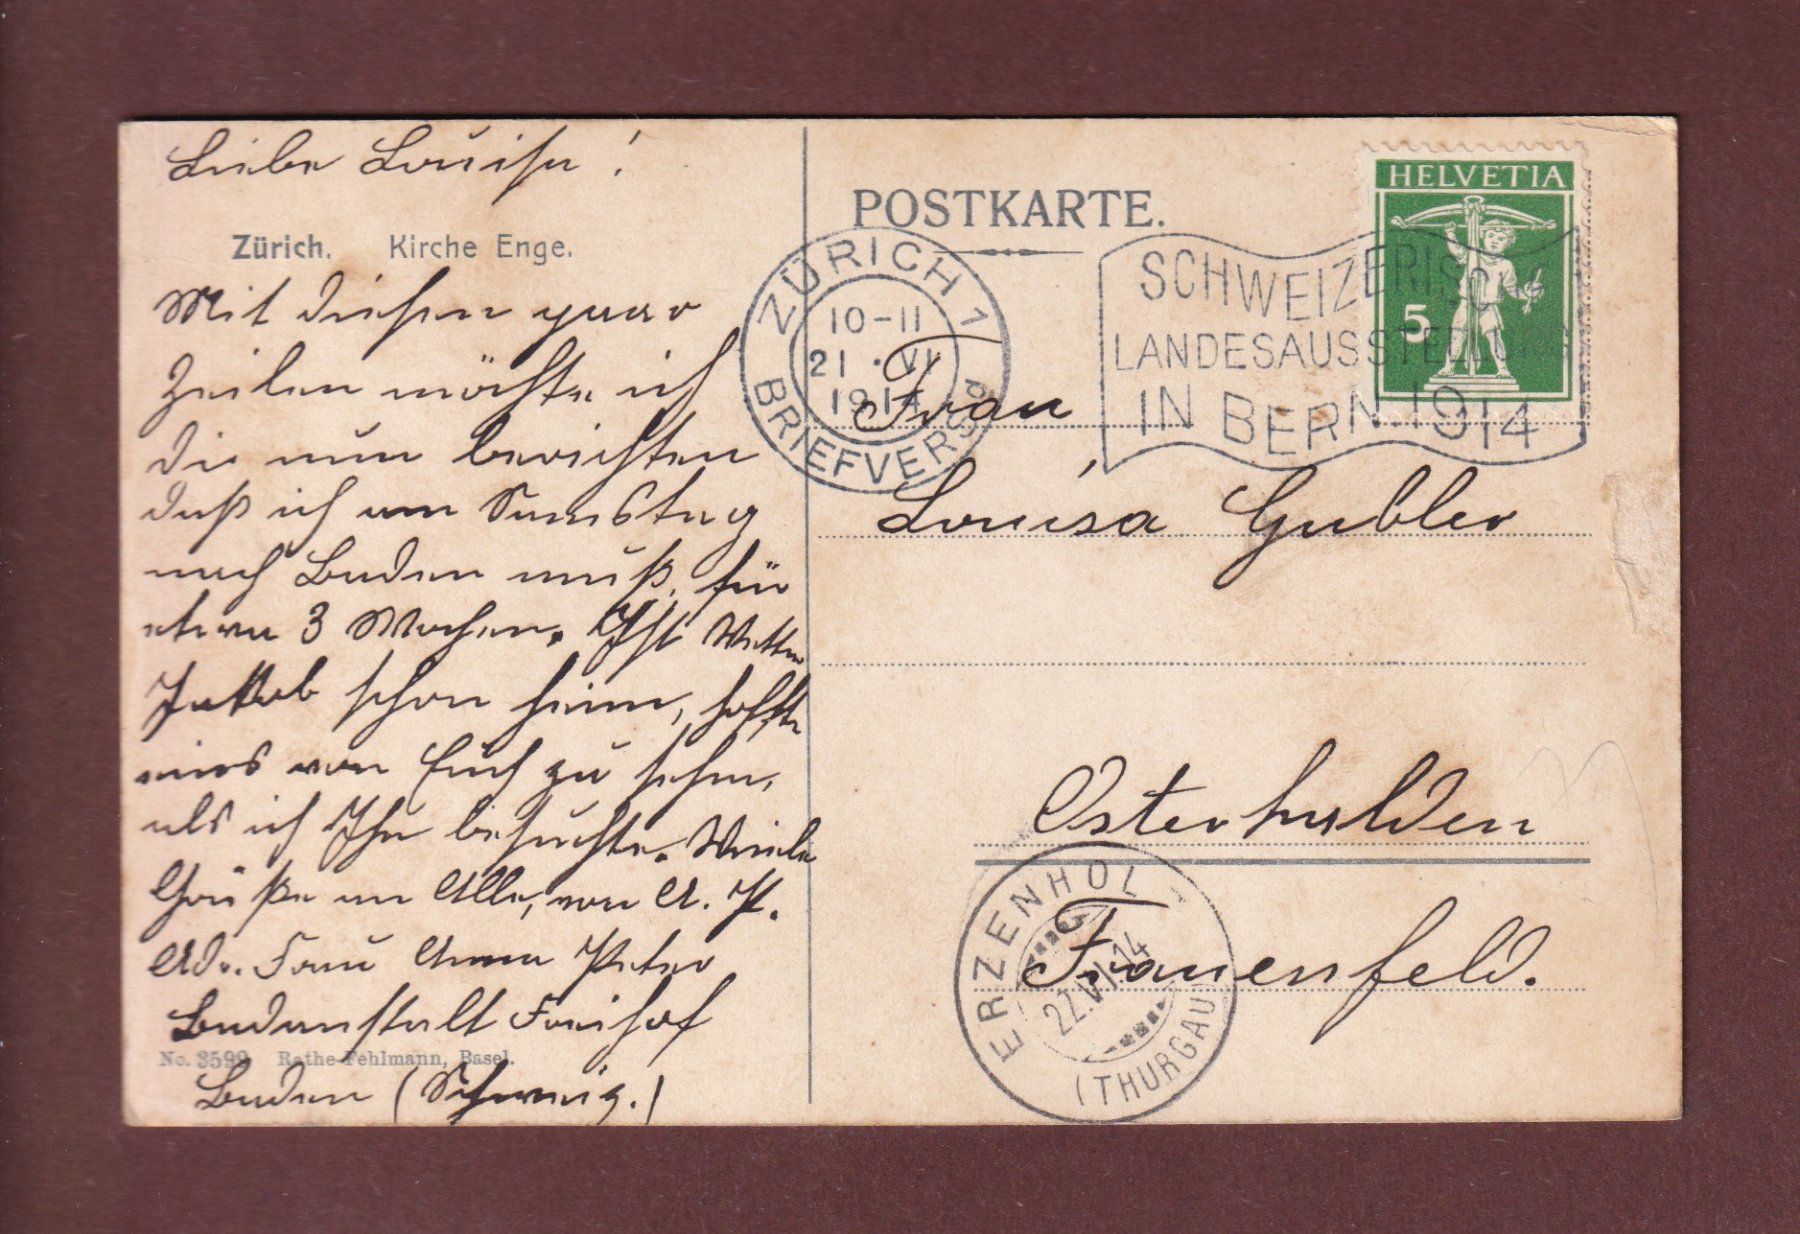 Liebe Louisa!
Zürich. Kirche Enge.
Mit diesen paar
Zeilen möchte ich
Dir nun berichten
daß ich am Samstag
nach Baden muß, für
etwa 3 Wochen. Ist Vetter
Jakob schon heim, hoffte
eines von Euch zu sehen,
als ich Ihn besuchte. Viele
Grüße an Alle, von A. P.
Adr. Frau Anna Peter
Badanstalt Freihof
No. 3599 Rathe-Fehlmann, Basel.
Baden (Schweiz.)
POSTKARTE.
HELVETIA
5
ZÜRICH 1
10-11
21.VI
1914
BRIEFVERSD
SCHWEIZERISCHE
LANDESAUSSTELLUNG
IN BERN.1914
Frau
Louisa Gubler
Osterhalden
Frauenfeld.
ERZENHOLZ
22.VI.14
(THURGAU)